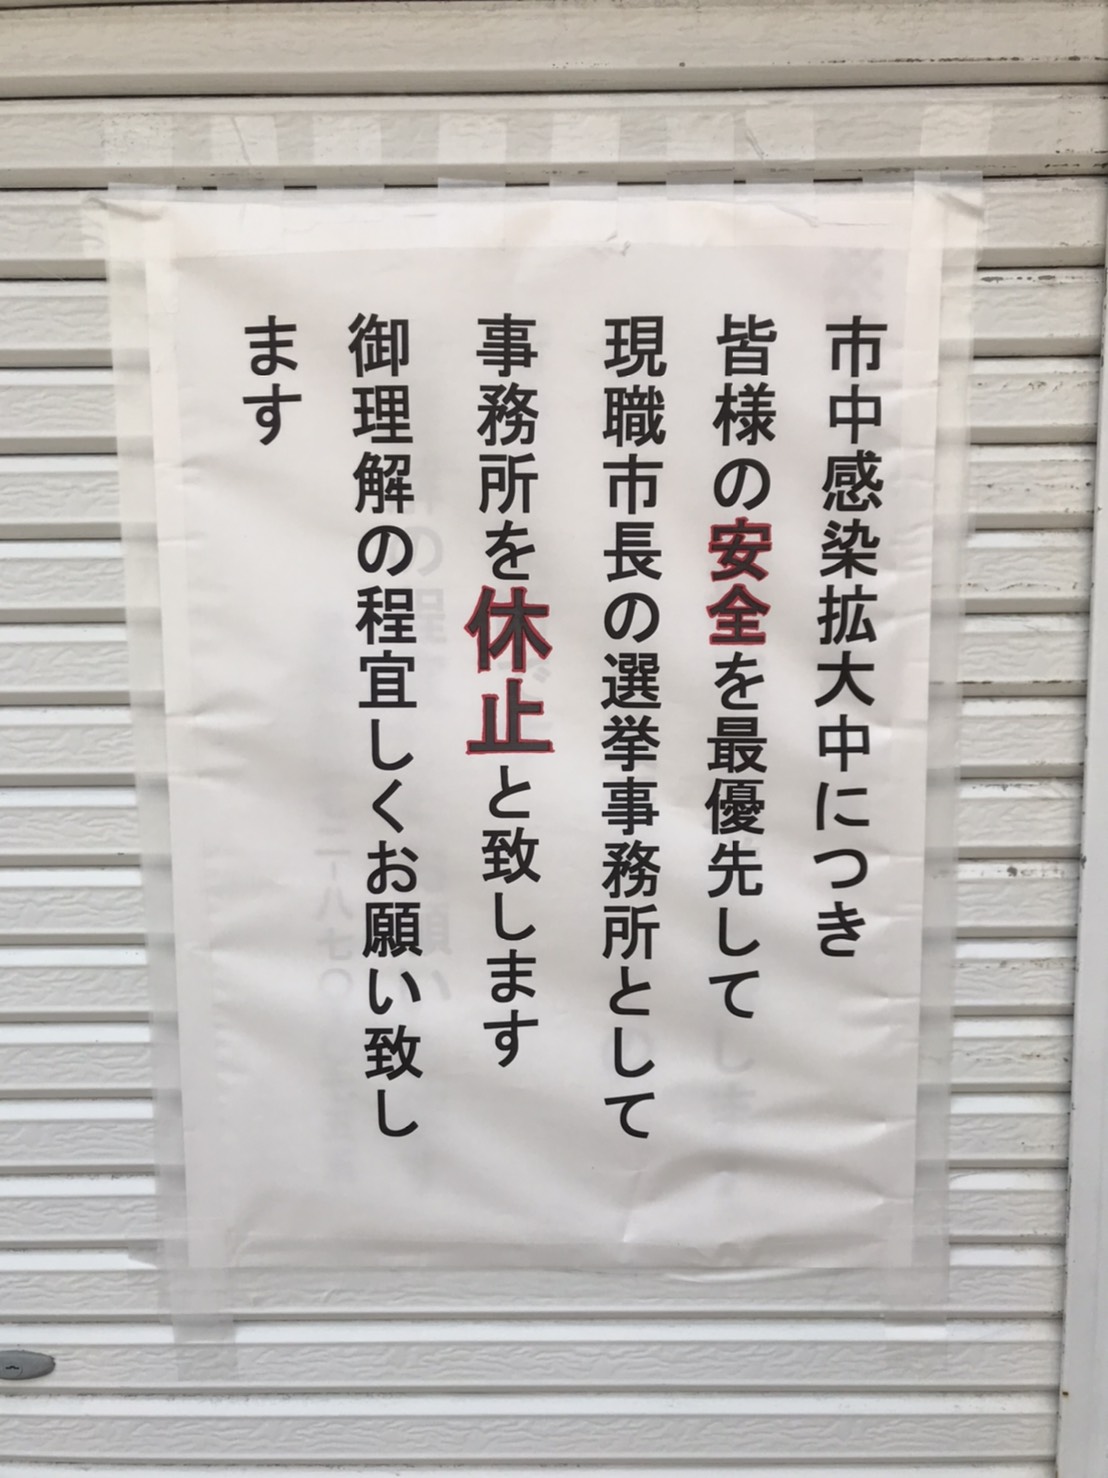 市中感染拡大中につき
皆様の安全を最優先して
現職市長の選挙事務所として
事務所を休止と致します
御理解の程宜しくお願い致し
ます